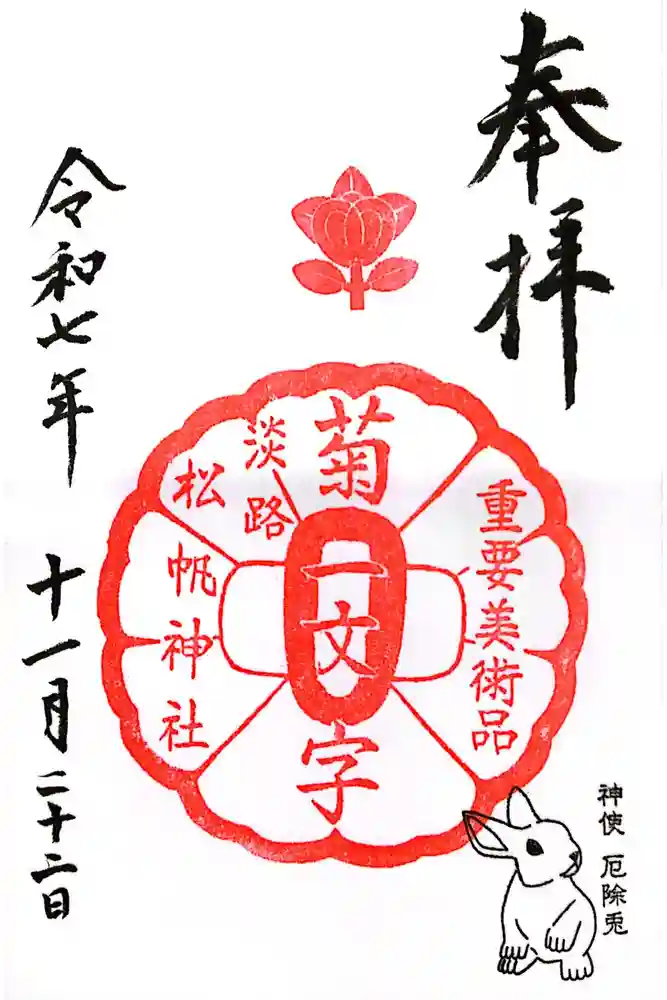 奉拝
重要美術品
菊一文字
淡路
松帆神社
令和七年
十一月二十二日
神使 厄除兎